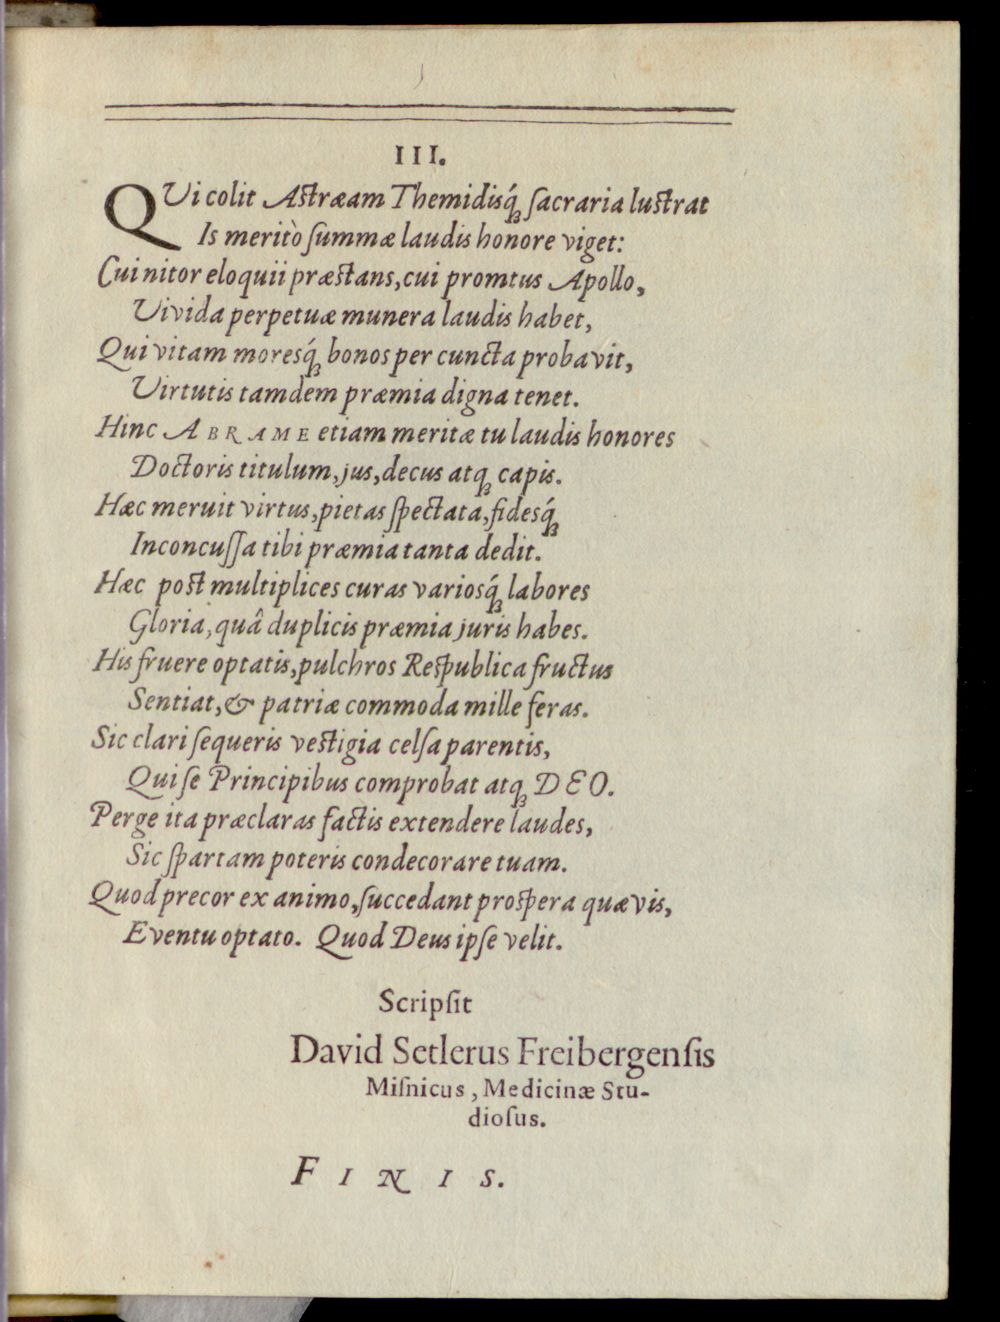 III.
QUi colit Astræam Themidisq́ꝫ ſacraria lustrat
Is meritò ſummæ laudis honore viget:
Cui nitor eloquii præstans, cui promtus Apollo,
Vivida perpetuæ munera laudis habet,
Qui vitam moresq́ꝫ bonos per cuncta probavit,
Virtutis tamdem præmia digna tenet.
Hinc ABRAME etiam meritæ tu laudis honores
Doctoris titulum, jus, decus atqꝫ capis.
Hæc meruit virtus, pietas ſpectata, fidesq́ꝫ
Inconcuſſa tibi præmia tanta dedit.
Hæc post multiplices curas variosq́ꝫ labores
Gloria, quâ duplicis præmia juris habes.
His fruere optatis, pulchros Reſpublica fructus
Sentiat, & patriæ commoda mille feras.
Sic clari ſequeris vestigia celſa parentis,
Qui ſe Principibus comprobat atqꝫ DEO.
Perge ita præclaras factis extendere laudes,
Sic ſpartam poteris condecorare tuam.
Quod precor ex animo, ſuccedant proſpera quævis,
Eventu optato. Quod Deus ipſe velit.
Scripſit
David Setlerus Freibergenſis
Miſnicus, Medicinæ Stu-
dioſus.
FINIS.